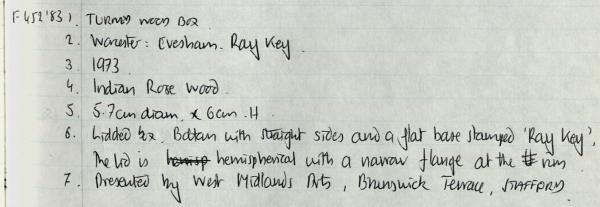 F452'83 1. TURNED WOOD BOX
2. Worcester: Evesham. Ray Key
3 1973
4. Indian Rose wood.
5. 5.7cm diam. x 6cm .H
6. Lidded box. Bottom with straight sides and a flat base stamped 'Ray Key'.
The lid is hemisp hemispherical with a narrow flange at the rim
7. Presented by West Midlands Arts, Brunswick Terrace, STAFFORD